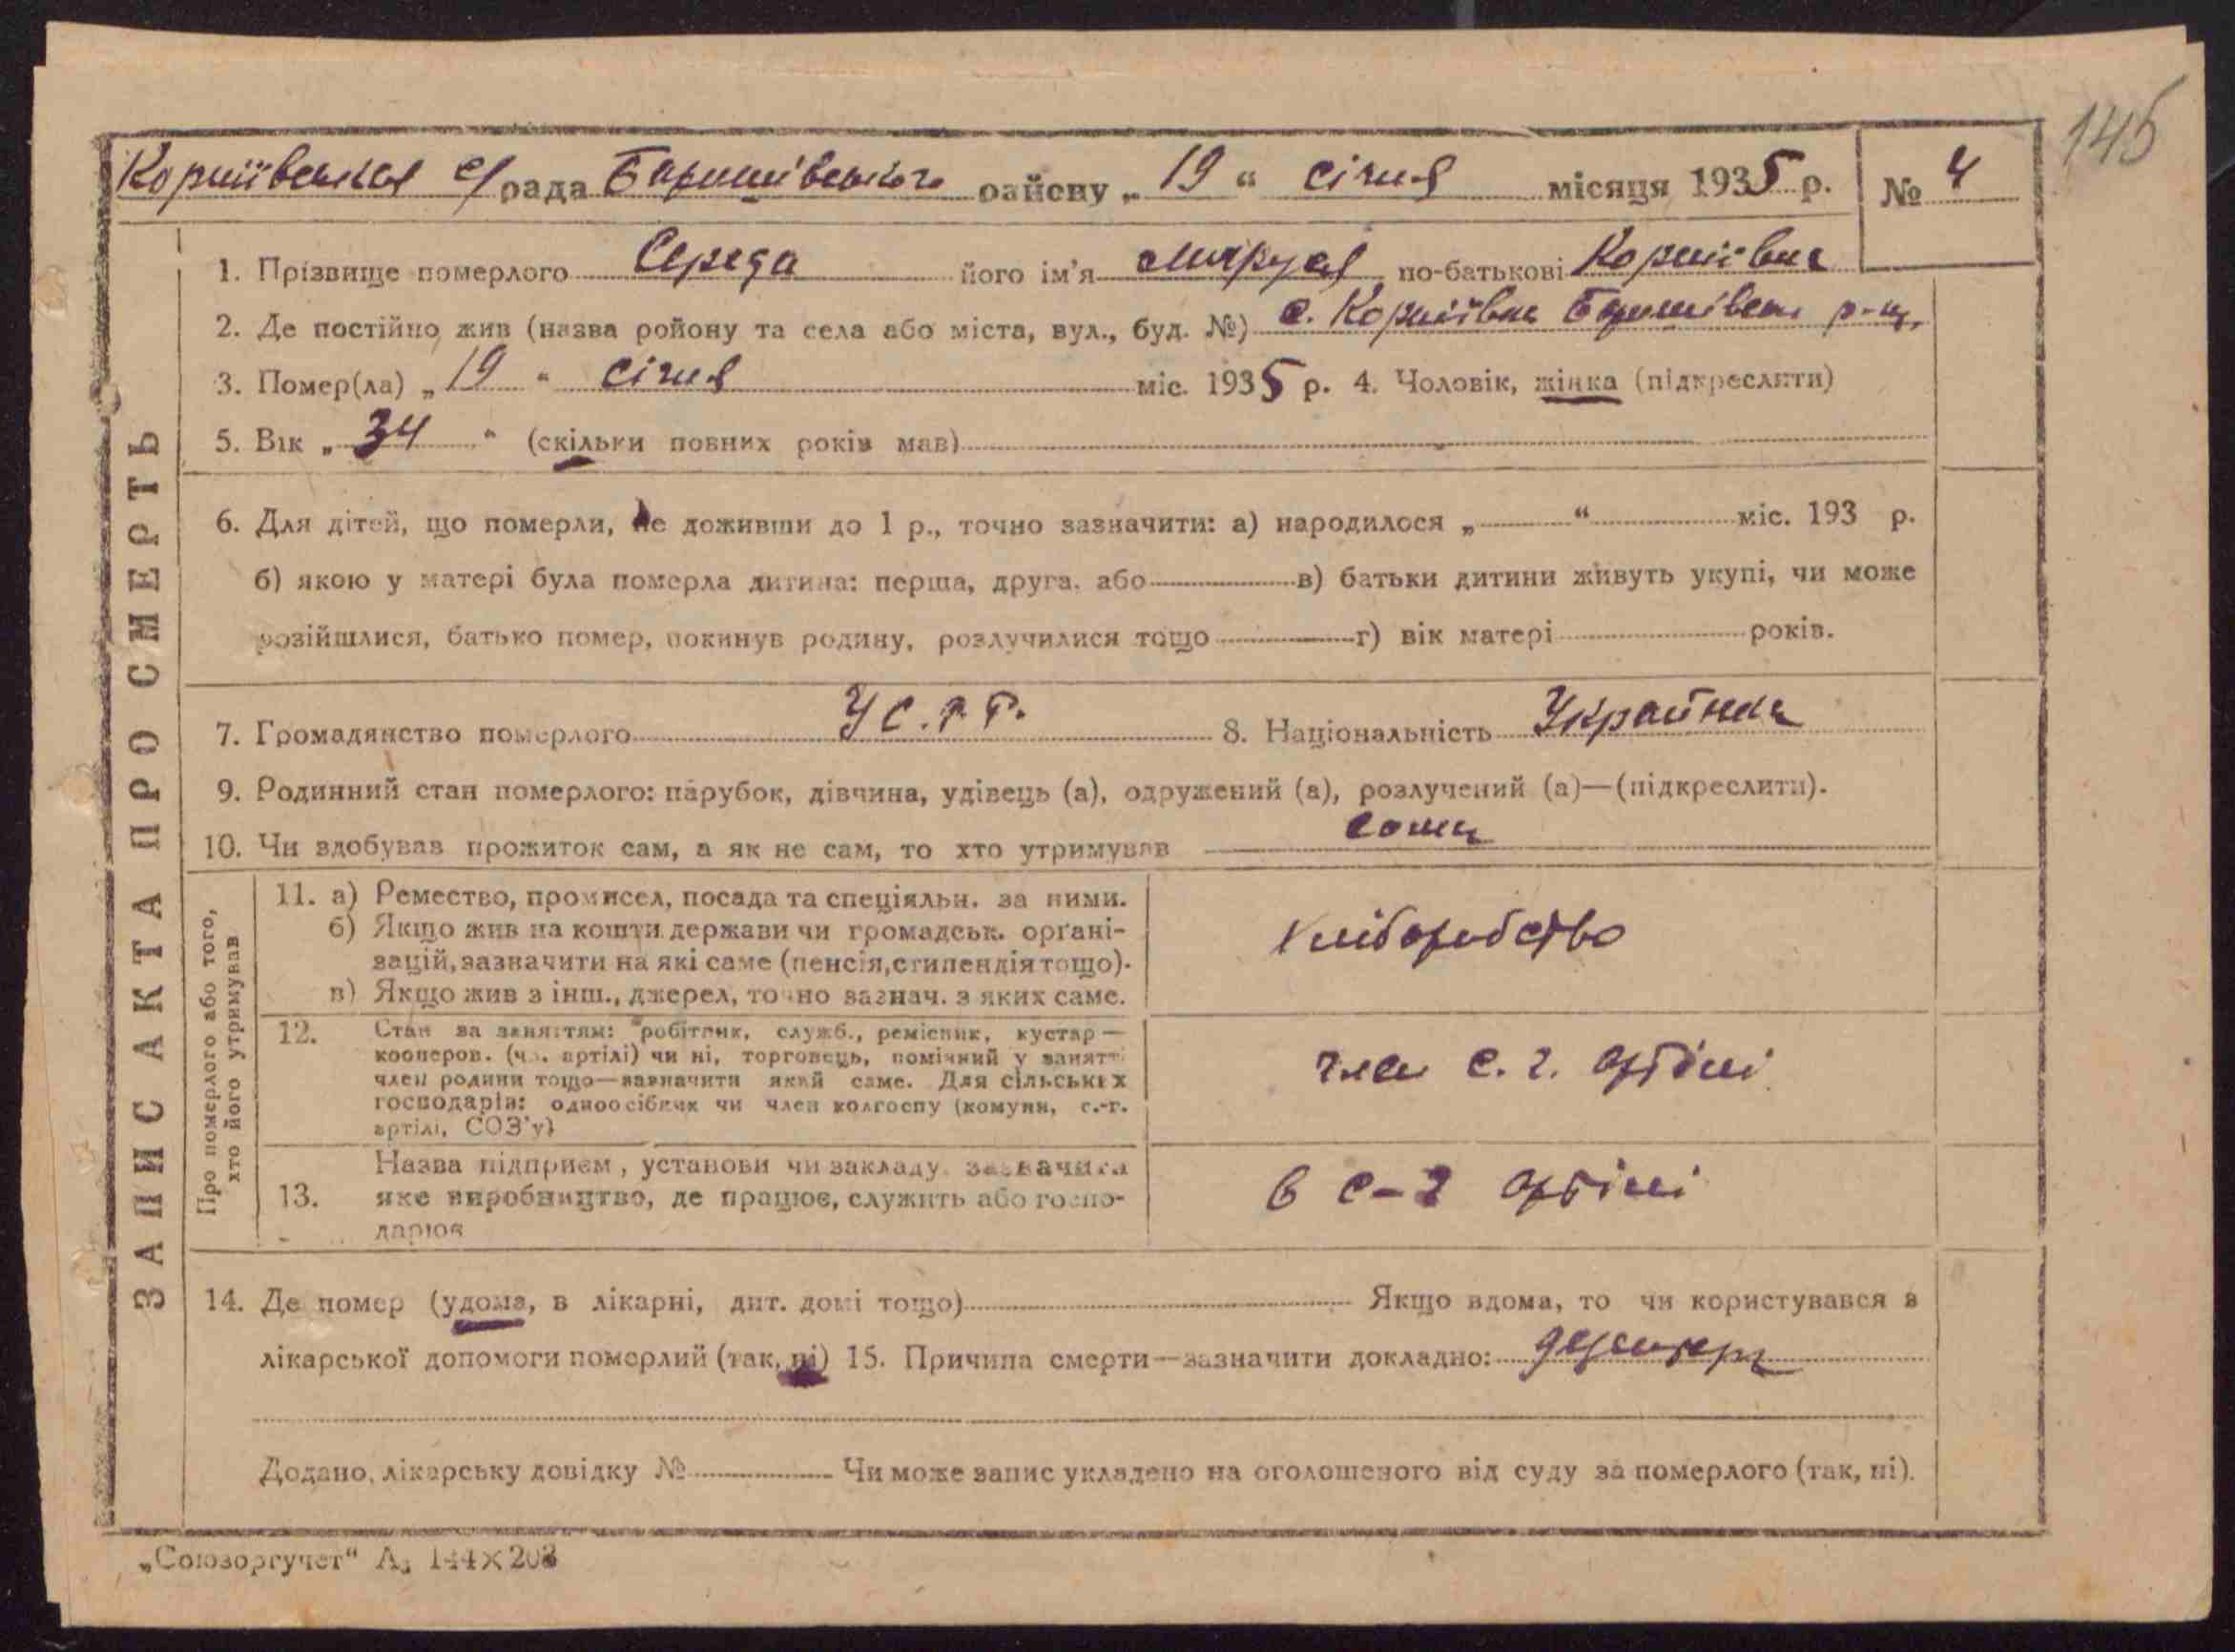 145
Корніївська с/рада Баришівського району „19“ січня місяця 1935 р. № 4
ЗАПИС АКТА ПРО СМЕРТЬ
1. Прізвище померлого Середа його ім’я Маруся по-батькові Корніївна
2. Де постійно жив (назва ройону та села або міста, вул., буд. №) с. Корніївка Баришівськ р-ну.
3. Помер(ла) „19“ січня міс. 1935 р. 4. Чоловік, жінка (підкреслити)
5. Вік „34“ (скільки повних років мав)
6. Для дітей, що померли, не доживши до 1 р., точно зазначити: а) народилося „ “ міс. 193 р.
б) якою у матері була померла дитина: перша, друга, або в) батьки дитини живуть укупі, чи може
розійшлися, батько помер, покинув родину, розлучилися тощо г) вік матері років.
7. Громадянство померлого У С.Р.Р. 8. Національність Украйнка
9. Родинний стан померлого: парубок, дівчина, удівець (а), одружений (а), розлучений (а)—(підкреслити).
10. Чи здобував прожиток сам, а як не сам, то хто утримував сама
Про померлого або того,
хто його утримував
11. а) Ремество, промисел, посада та спеціяльн. за ними.
б) Якщо жив на кошти держави чи громадськ. органі-
зацій, зазначити на які саме (пенсія, стипендія тощо).
в) Якщо жив з інш., джерел, точно зазнач. з яких саме.
хліборобство
12. Стан за заняттям: робітник, служб., ремісник, кустар—
кооперов. (чл. артілі) чи ні, торговець, помічний у занятті
член родини тощо—зазначити який саме. Для сільських
господарів: одноосібник чи член колгоспу (комуни, с.-г.
артілі, СОЗ’у)
член с. г. артілі
13. Назва підприєм, установи чи закладу. зазначити
яке виробництво, де працює, служить або госпо-
дарює
в с-г артілі
14. Де помер (удома, в лікарні, дит. домі тощо) Якщо вдома, то чи користувався з
лікарської допомоги померлий (так, ні) 15. Причина смерти—зазначити докладно:
Додано, лікарську довідку № Чи може запис укладено на оголошеного від суду за померлого (так, ні).
„Союзоргучет“ А5 144×203